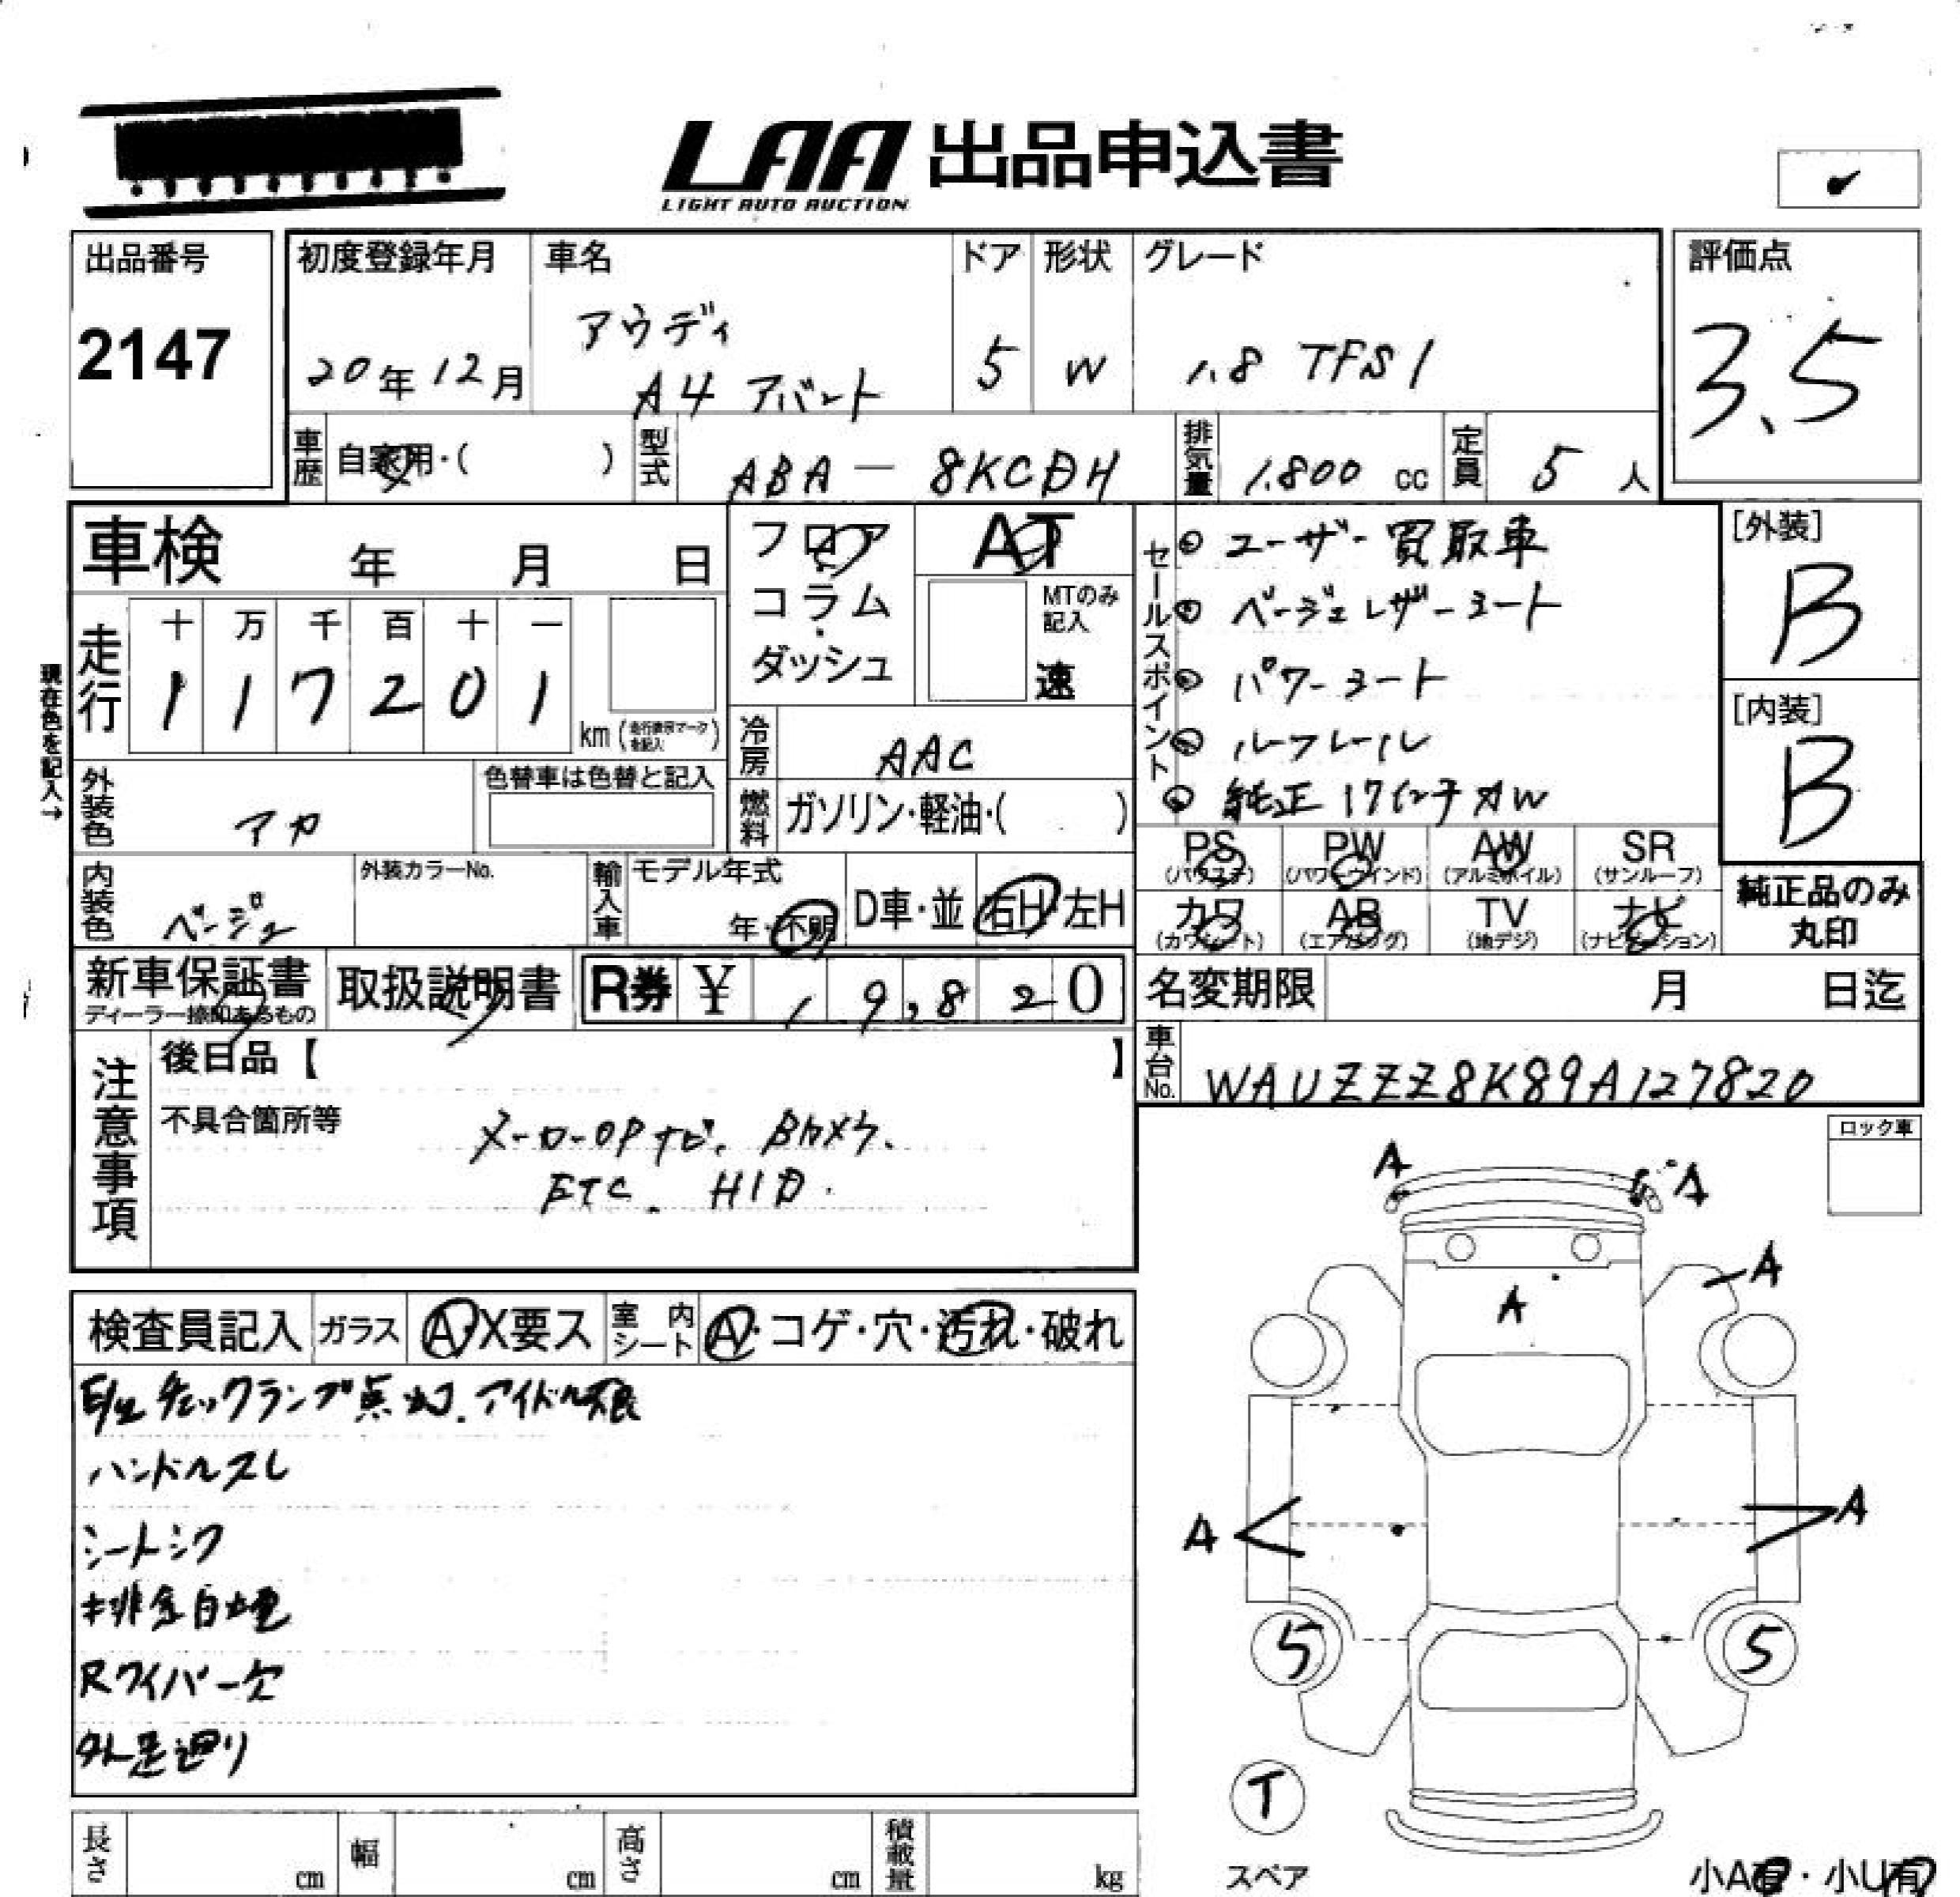 LAA 出品申込書
LIGHT AUTO AUCTION
出品番号
2147
初度登録年月
20年12月
車名
アウディ
A4 アバント
ドア
5
形状
W
グレード
1.8 TFSI
評価点
3.5
車歴 自家用・( )
型式 ABA-8KCDH
排気量 1,800 cc
定員 5 人
車検 年 月 日
フロア・コラム・ダッシュ
AT
MTのみ記入
速
走行
十 万 千 百 十 一
1 1 7 2 0 1
km (走行表示マークを記入)
現在色を記入→
冷房 AAC
燃料 ガソリン・軽油・( )
外装色 アカ
色替車は色替と記入
内装色 ベージュ
外装カラーNo.
輸入車
モデル年式
年・不明
D車・並
右H・左H
セールスポイント
◎ユーザー買取車
◎ベージュレザーシート
◎パワーシート
◎ルーフレール
◎純正17インチAW
[外装]
B
[内装]
B
PS (パワステ)
PW (パワーウインド)
AW (アルミホイル)
SR (サンルーフ)
カワ (カワシート)
AB (エアバッグ)
TV (地デジ)
ナビ (ナビゲーション)
純正品のみ
丸印
新車保証書
ディーラー捺印あるもの
取扱説明書
R券 ¥ 1 9,8 2 0
名変期限 月 日迄
車台No. WAUZZZ8K89A127820
注意事項
後日品【 】
不具合箇所等
メーカーOPナビ. Bカメラ.
ETC. HID.
ロック車
検査員記入
ガラス A・X要ス
室内シート A・コゲ・穴・汚れ・破れ
E/gチェックランプ点灯.アイドル不良
ハンドルスレ
シートシワ
排気白煙
Rワイパー欠
外足廻り
A
A
A
A
A
A
5
5
T
スペア
小A有・小U有
長さ cm
幅 cm
高さ cm
積載量 kg